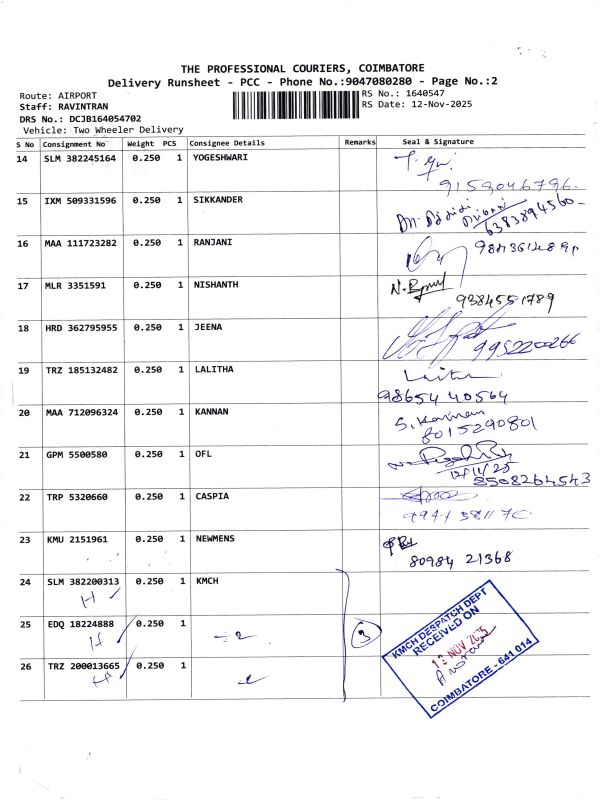 THE PROFESSIONAL COURIERS, COIMBATORE
Delivery Runsheet - PCC - Phone No.:9047080280 - Page No.:2
Route: AIRPORT
RS No.: 1640547
Staff: RAVINTRAN
RS Date: 12-Nov-2025
DRS No.: DCJB164054702
Vehicle: Two Wheeler Delivery
S No Consignment No Weight PCS Consignee Details Remarks Seal & Signature
14 SLM 382245164 0.250 1 YOGESHWARI
9159046796.
15 IXM 509331596 0.250 1 SIKKANDER
6383894560
16 MAA 111723282 0.250 1 RANJANI
17 MLR 3351591 0.250 1 NISHANTH
9384551789
18 HRD 362795955 0.250 1 JEENA
9952200266
19 TRZ 185132482 0.250 1 LALITHA
Lalitha
98654 40564
20 MAA 712096324 0.250 1 KANNAN
S. Kannan
8015290801
21 GPM 5500580 0.250 1 OFL
12/11/25
8508264543
22 TRP 5320660 0.250 1 CASPIA
23 KMU 2151961 0.250 1 NEWMENS
80984 21368
24 SLM 382200313 0.250 1 KMCH
H
25 EDQ 18224888 0.250 1
H
3
26 TRZ 200013665 0.250 1
H
KMCH DESPATCH DEPT
RECEIVED ON
12 NOV 2025
COIMBATORE - 641 014